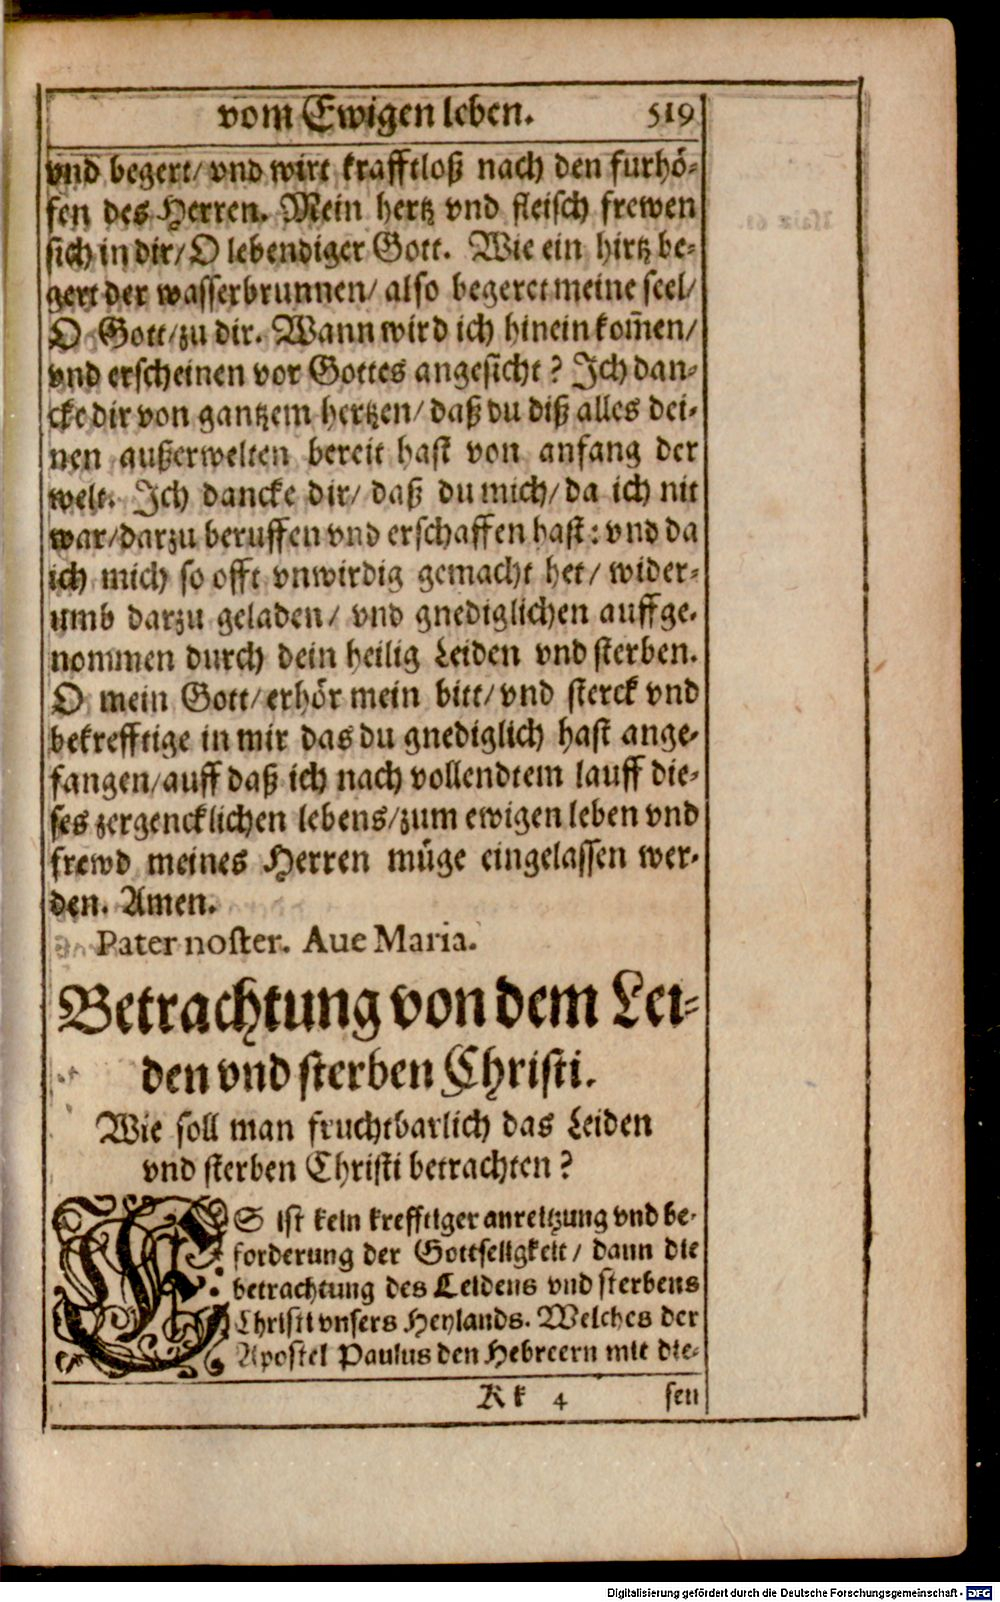 vom Ewigen leben. 519
vnd begert/ vnd wirt krafftloß nach den furhö-
fen des Herren. Mein hertz vnd fleisch frewen
sich in dir/ O lebendiger Gott. Wie ein hirtz be-
gert der wasserbrunnen/ also begeret meine seel/
O Gott/ zu dir. Wann wird ich hinein kom̃en/
vnd erscheinen vor Gottes angesicht? Ich dan-
cke dir von gantzem hertzen/ daß du diß alles dei-
nen außerwelten bereit hast von anfang der
welt. Ich dancke dir/ daß du mich/ da ich nit
war/ darzu beruffen vnd erschaffen hast: vnd da
ich mich so offt vnwirdig gemacht het/ wider-
umb darzu geladen/ vnd gnediglichen auffge-
nommen durch dein heilig Leiden vnd sterben.
O mein Gott/ erhör mein bitt/ vnd sterck vnd
bekrefftige in mir das du gnediglich hast ange-
fangen/ auff daß ich nach vollendtem lauff die-
ses zergencklichen lebens/ zum ewigen leben vnd
frewd meines Herren müge eingelassen wer-
den. Amen.
Pater noster. Aue Maria.
Betrachtung von dem Lei-
den vnd sterben Christi.
Wie soll man fruchtbarlich das Leiden
vnd sterben Christi betrachten?
ES ist kein krefftiger anreitzung vnd be-
forderung der Gottseligkeit/ dann die
betrachtung des Leidens vnd sterbens
Christi vnsers Heylands. Welches der
Apostel Paulus den Hebreern mit die-
Kk 4 sen
Digitalisierung gefördert durch die Deutsche Forschungsgemeinschaft - DFG